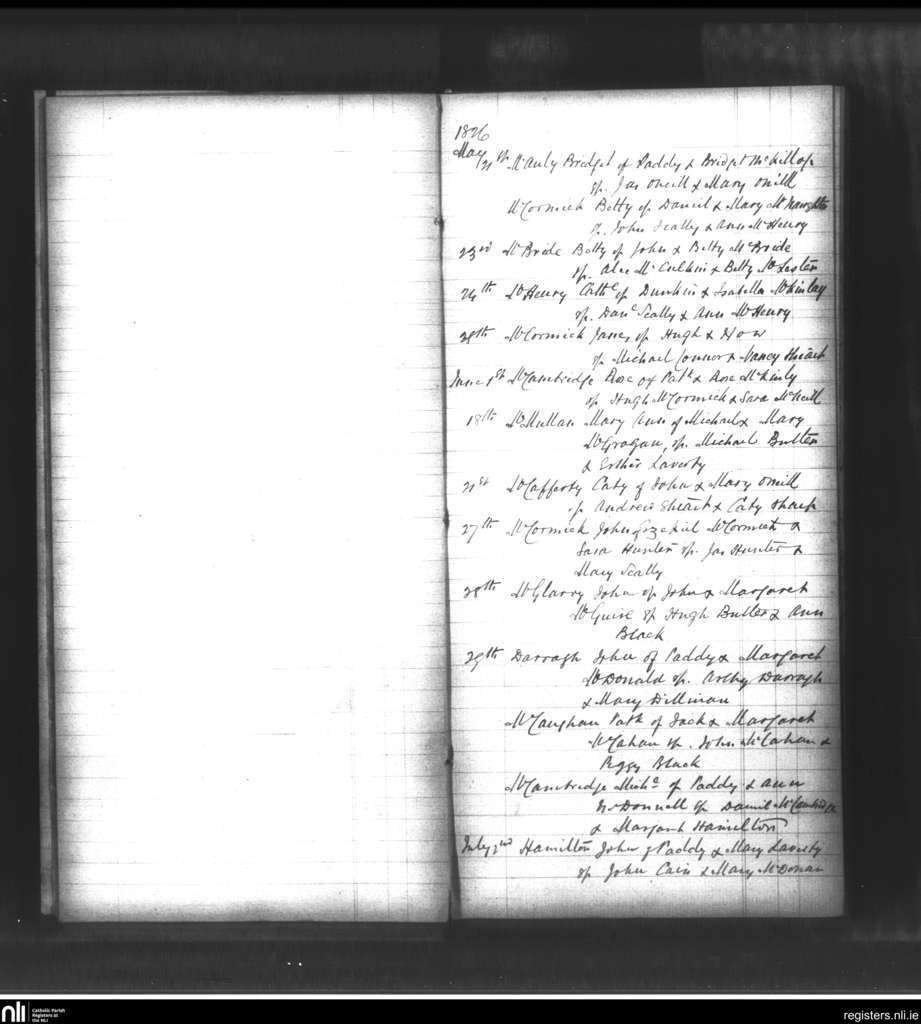 1826
May 21st McAuly Bridget of Paddy & Bridget McKillop
sp. Jas Oneill & Mary Oneill
McCormick Betty of Daniel & Mary McNaughten
sp. John Scally & Ann McHenry
23rd McBride Betty of John & Betty McBride
sp. Alex McCulkin & Betty McLester
24th McHenry Cathe of Dunkin & Isabella McKinlay
sp. Danl Scally & Ann McHenry
28th McCormick James of Hugh &
sp Michael Connor & Nancy Shart
June 1st McCambridge Rose of Patk & Rose McKinly
sp Hugh McCormick & Sara McNeill
18th McMullan Mary Ann of Michael & Mary
McGrogan, sp. Michael Butler
& Esther Laverty
21st McCafferty Caty of John & Mary Oneill
sp Andrew Shart & Caty Sharp
27th McCormick John of Ezekiel McCormick &
Sara Hunter sp. Jas Hunter &
Mary Scally
28th McGlarry John of John & Margaret
McGuire sp Hugh Butler & Ann
Black
29th Darragh John of Paddy & Margaret
McDonald sp. Archy Darragh
& Mary Dillinan
McCaughan Patk of Jack & Margaret
McCahan sp. John McCahan &
Peggy Black
McCambridge Michl of Paddy & Ann
McDonnell sp Daniel McCambridge
& Margaret Hamilton
July 2nd Hamilton John of Paddy & Mary Laverty
sp John Cain & Mary McDonan
nli
Catholic Parish
Registers at
the NLI
registers.nli.ie